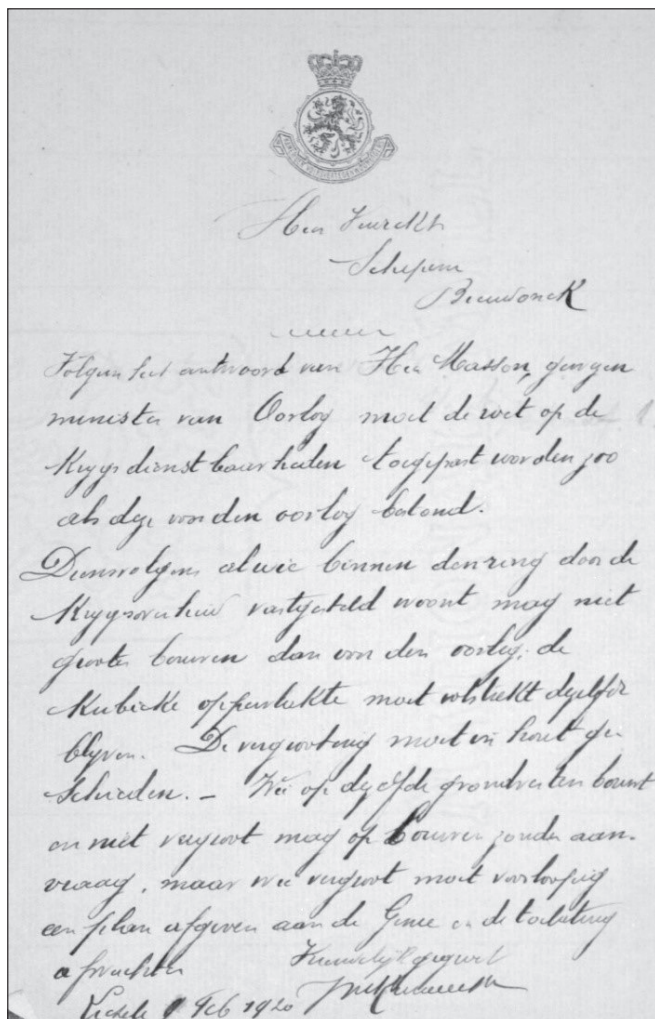 Heer
Schepene
Breendonck
Volgens het antwoord van Heer Masson, gewezen
minister van Oorlog moet de wet op de
Krygsdienstbaarheden toegepast worden zoo
als dye voor den oorlog bestond.
Dienvolgens alwie binnen den ring door de
Krygsoverheid vastgesteld woont mag niet
grooter bouwen dan voor den oorlog; de
Kubieke oppervlakte moet volstrekt dezelfde
blyven. De vergrooting moet in hout ge-
schieden. – Wie op dezelfde grondvesten bouwt
en niet vergroot mag opbouwen zonder aan-
vraag, maar wie vergroot moet voorloopig
een plan afgeven aan de Genie en de toelating
afwachten
Feb 1920